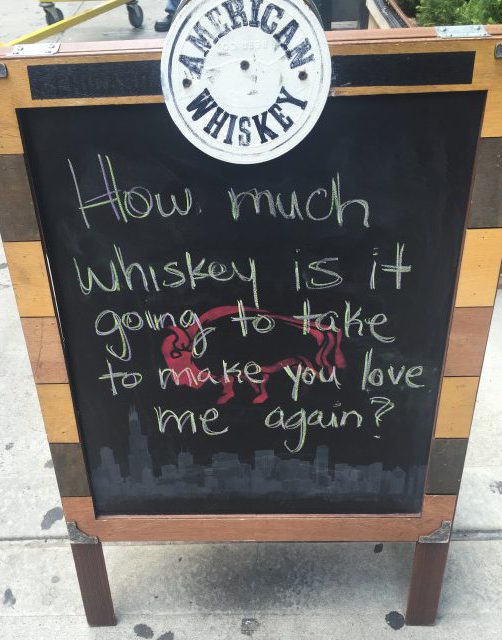 AMERICAN
WHISKEY
How much
whiskey is it
going to take
to make you love
me again?